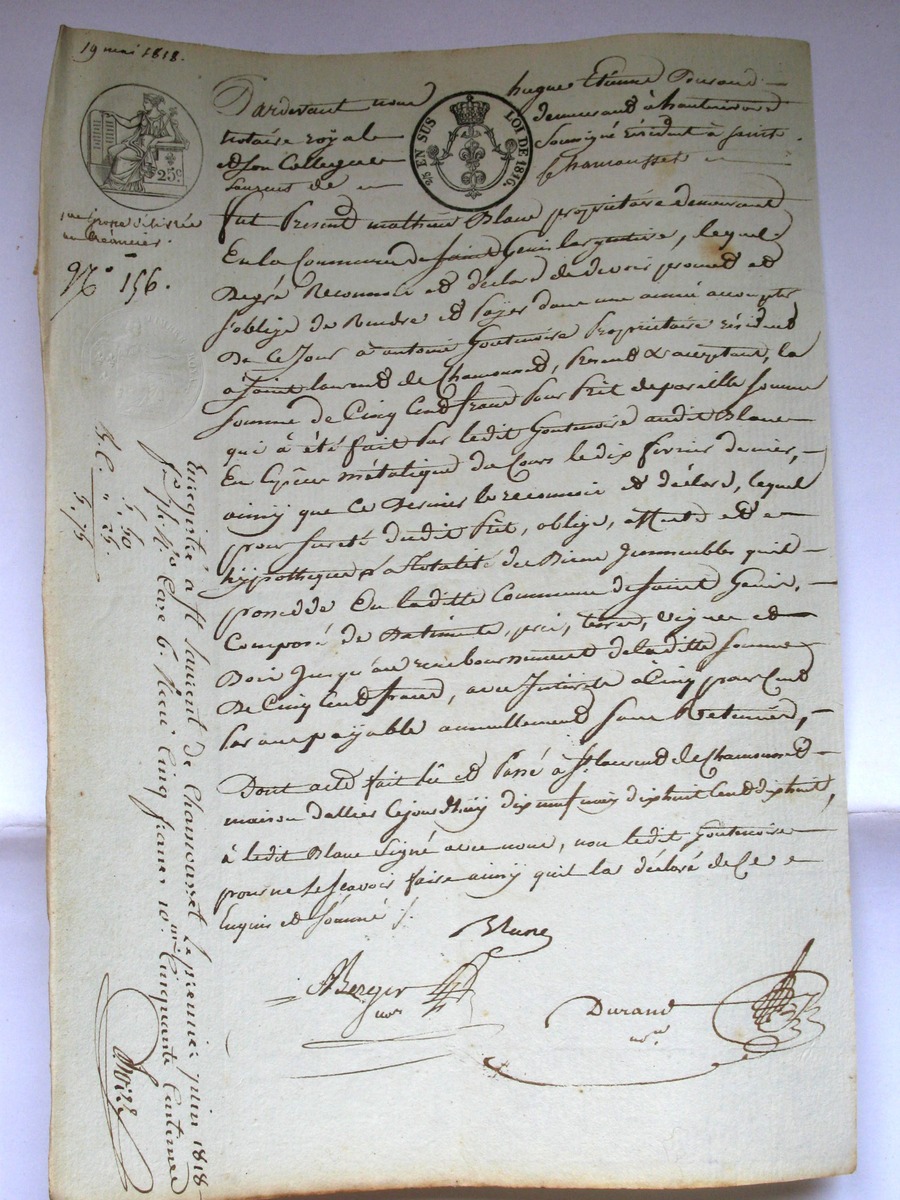 19 mai 1818.
25c
¼ EN SUS LOI DE 1816.
Pardevant nous hugue Etienne Durand
notaire royal demeurant à hauterivoire
et son Collegue Soussigné résident à Saint
Laurens de Chamousset
fut Présent mathieu Blanc propriétaire demeurant
En la Commune de Saint Genis largentiere, lequel
Degré Reconnoit et déclard de devoir promet et
s'oblige de Rendre et Payer dans une année a compter
De ce Jour à antoine Goutenoire Propriétaire résident
à Saint laurend de Chamousset, Présend & aceptant, la
Somme de Cinq Cend franc pour Prêt de pareille Somme
qui à été fait Par ledit Goutenoire audit Blanc
En Espèce métalique du Cours le dix fevrier dernier,
ainsy que ce Dernier le reconnoit et déclard, lequel
pour Sureté dudit Prêt, oblige, affecte et
hyppotheque la totalité des Biens Jmmeubles quil
possedde En laditte Commune de Saint Genis,
Composé de Batiments, prés, terres, vignes et
Bois Jusqu'au remboursement de laditte Somme
De Cinq Cend francs, avec Jntérêts à Cinq pour Cend
Par an payable annuellement Sans Retenues,
Dont acte fait lû et Passé à St. laurend de Chamousset
maison dallier Cejourd'huy dix neuf may dix huit Cend dix huit,
à ledit Blanc Signé avec nous, non ledit Goutenoire
pour ne le Scavoir faire ainsy quil la déclaré de Ce
Enquis et Sommé
Blanc
ABerger
nore
Durand
nore
une grosse délivrée
au Créancier.
No. 156.
Enregistré à St Laurent de Chamousset le premier juin 1818
Reçu Cinq francs Cinquante Centimes
5. 50